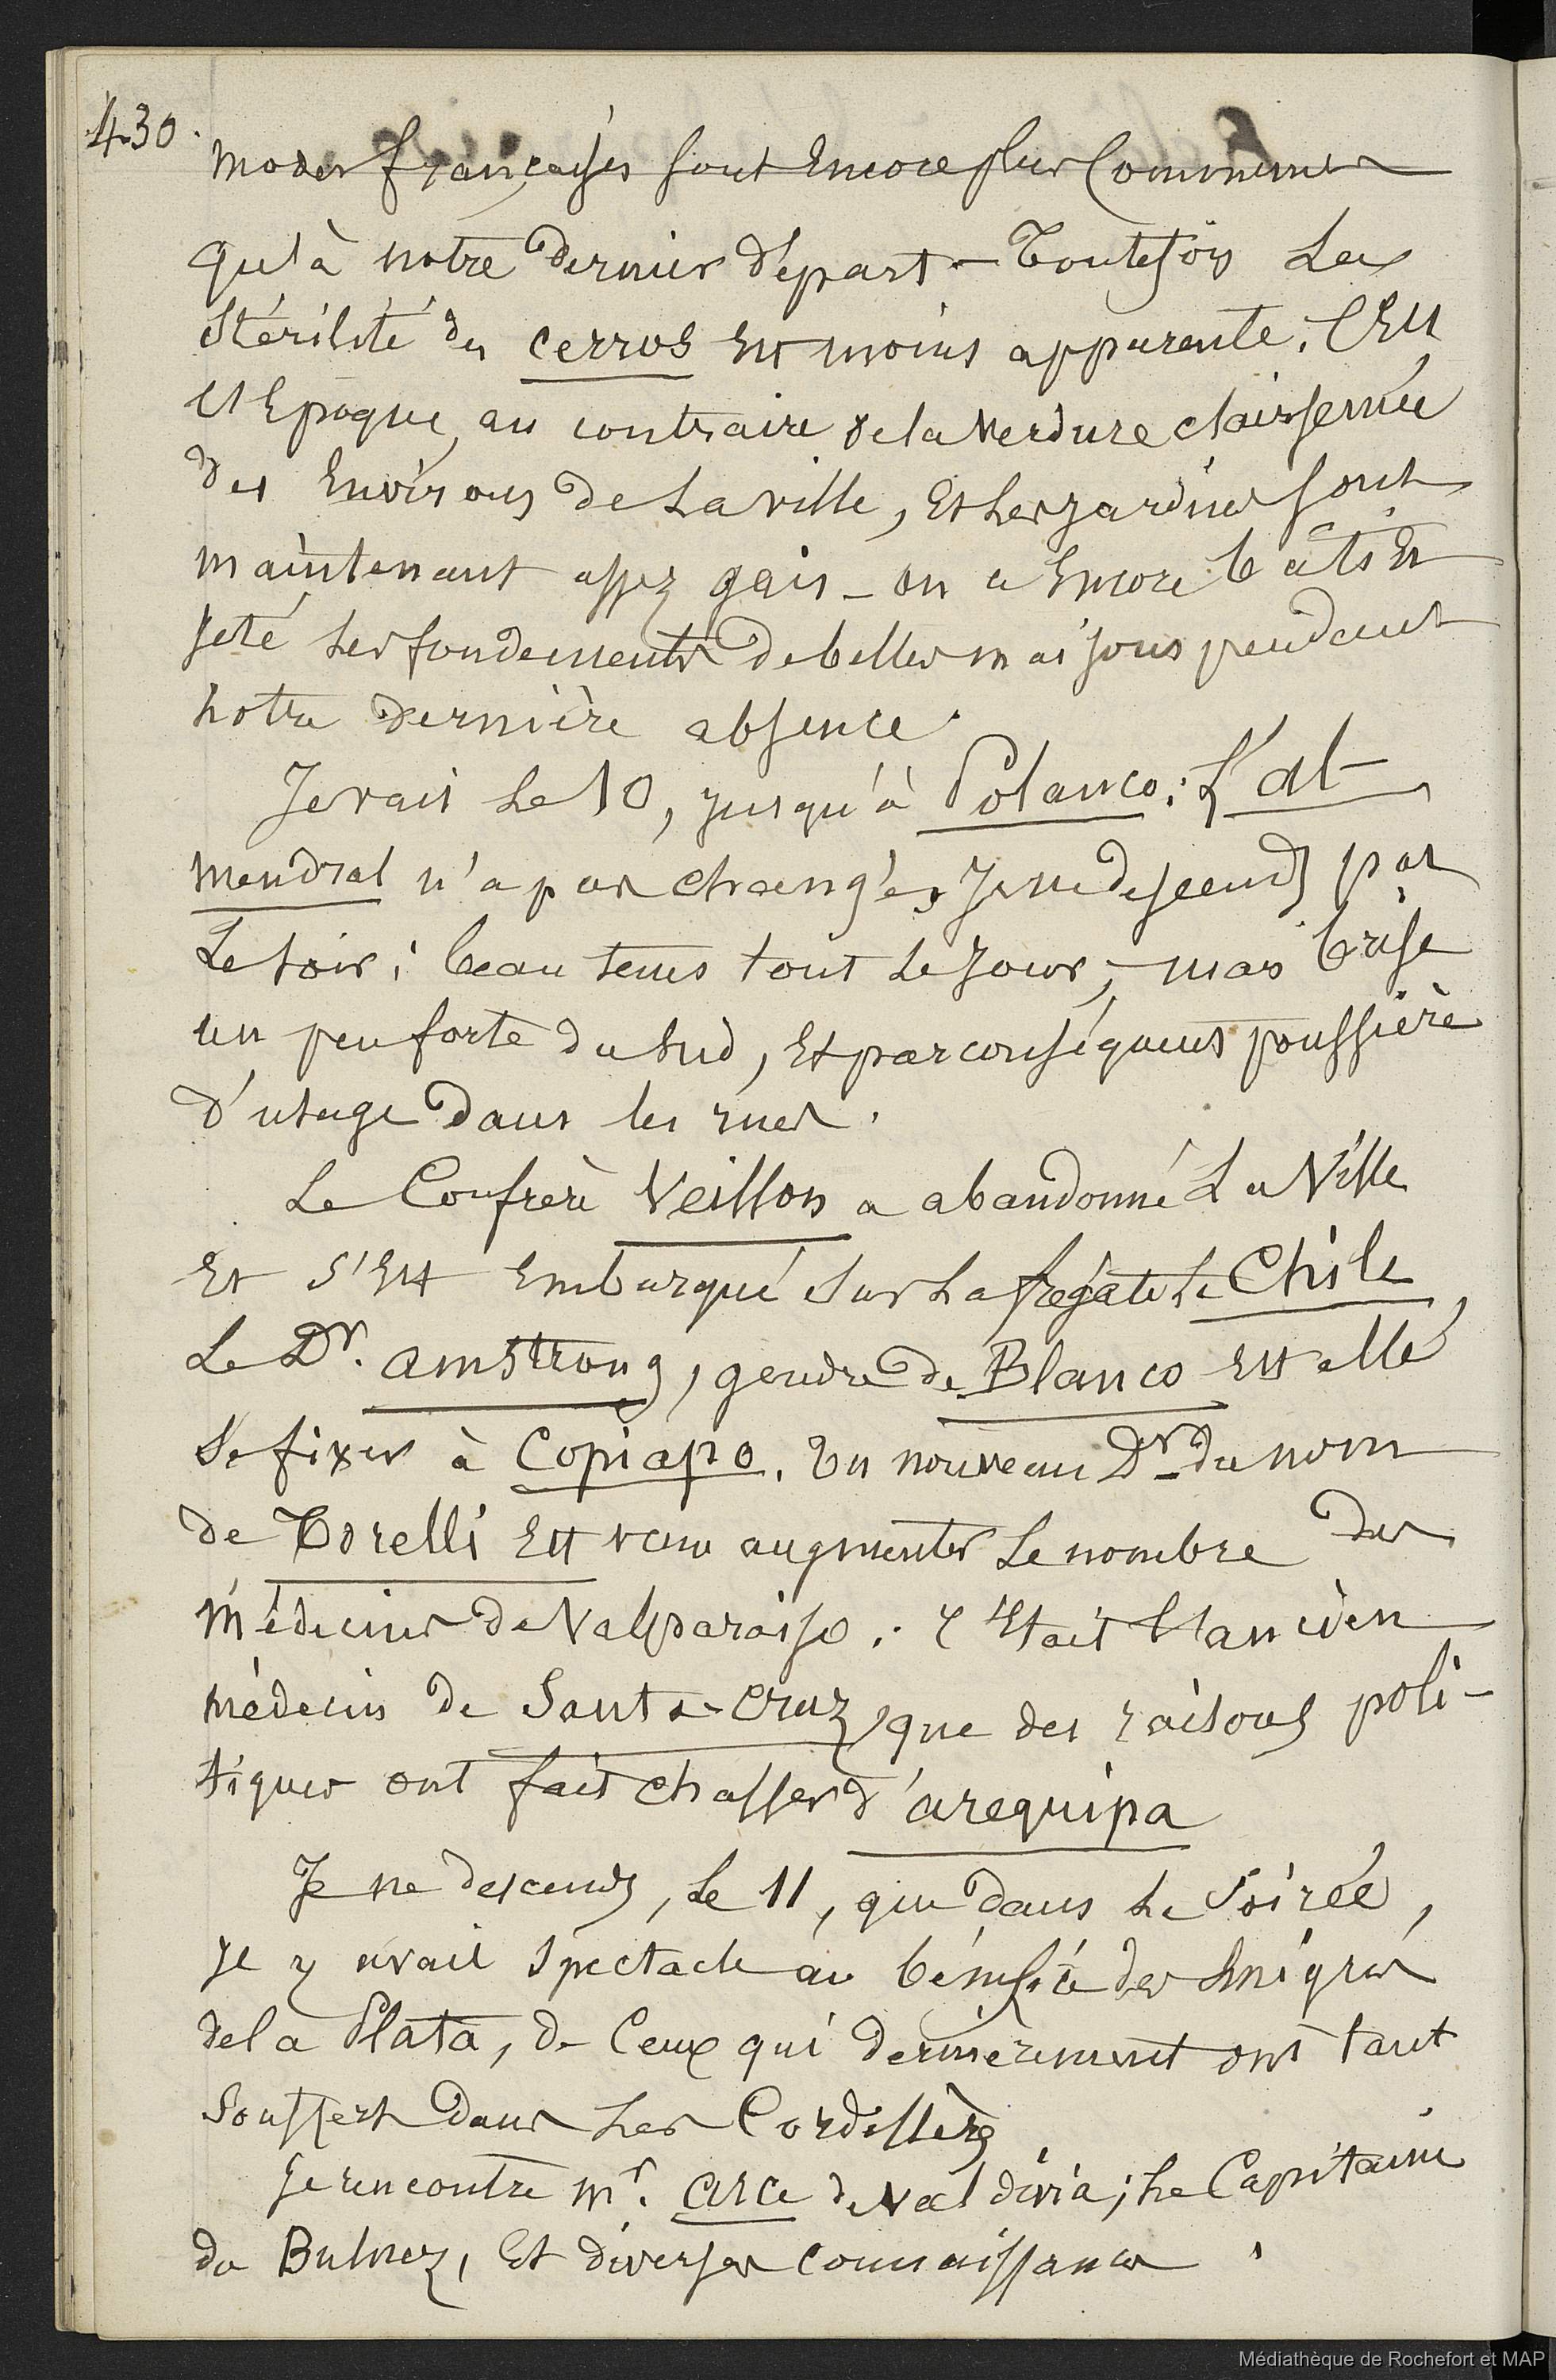 430.
modes françaises sont encore plus communes
qu'à notre dernier départ - Toutefois la
stérilité des cerros est moins apparente. C'est
l'Epoque, au contraire de la verdure clairsemée
des Environs de la ville, Et les jardins sont
maintenant assez gais - on a Encore bâti Et
jeté les fondements de belles maisons pendant
notre dernière absence.
Je vais le 10, jusqu'à Polanco; L'Al-
mendral n'a pas changé, Je ne descends pas
Le soir; beau tems tout le jour, mais brise
un peu forte du Sud, Et par conséquent poussière
d'usage dans les rues.
Le Confrère Veillon a abandonné La Ville
Et s'Est Embarqué sur La frégate le Chile,
Le Dr. amstrong, gendre de Blanco Est allé
Se fixer à Copiapo. Un nouveau Dr. du nom
de Torelli Est venu augmenter Le nombre des
médecins de Valparaiso. C'Etait l'ancien
médecin de Santa-Cruz, que des raisons poli-
tiques ont fait chasser d'arequipa
Je ne descends, le 11, que dans la Soirée,
il y avait Spectacle au bénéfice des Emigrés
de la Plata, de Ceux qui dernièrement ont tant
Souffert dans les Cordillères
Je rencontre Mr. Arce de Valdivia; le Capitaine
du Bulnez, Et diverses connaissances.
Médiathèque de Rochefort et MAP